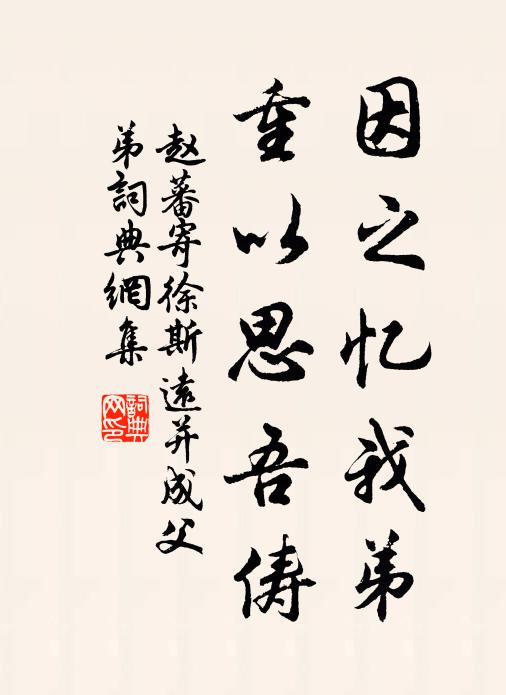 因之忆我弟
重以思吾俦
赵蕃寄徐斯遠并成父
弟詞典網集
詞典
网印